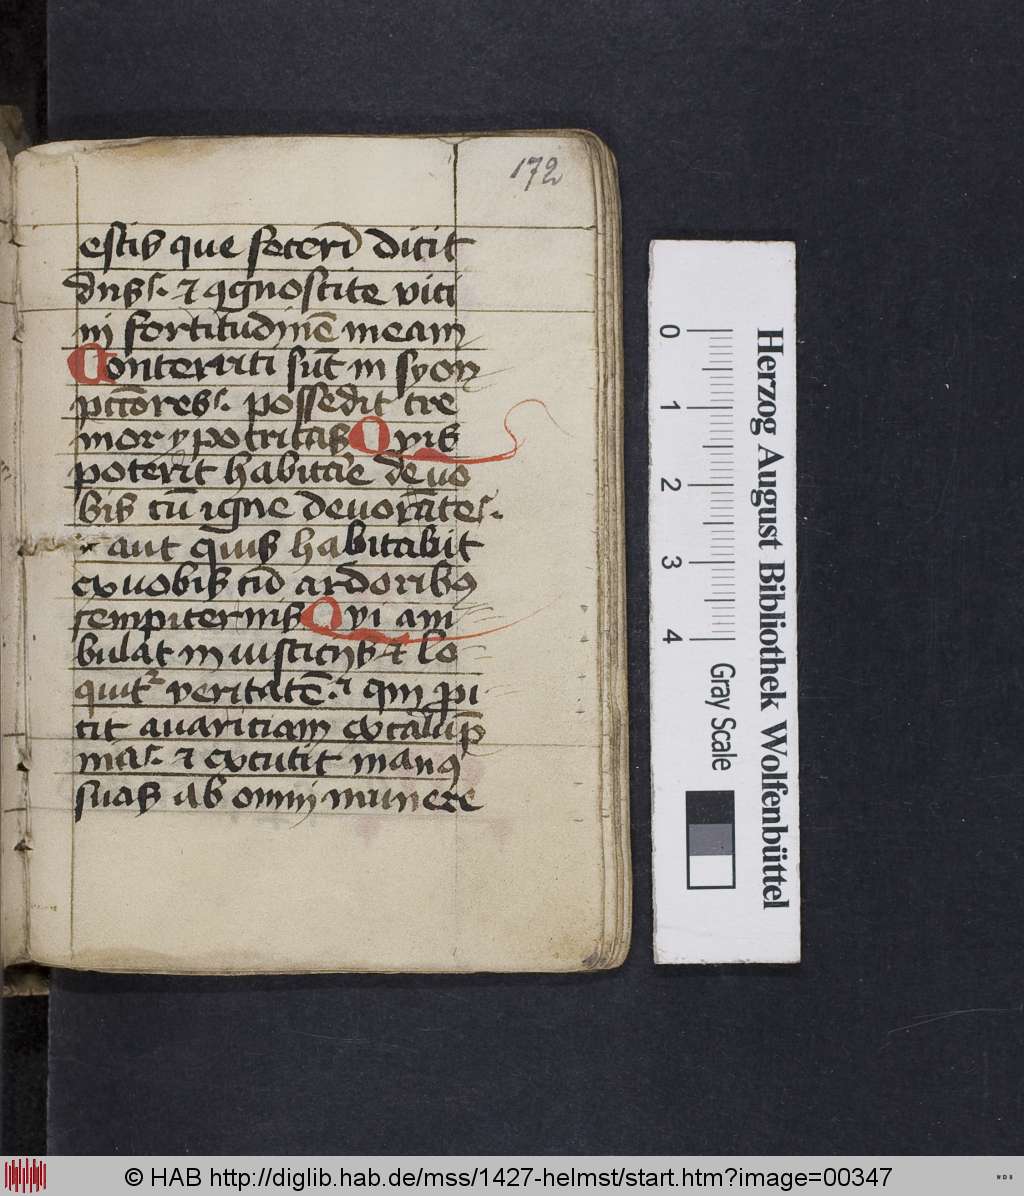 172
estis que feceri̅ dicit
dn̅s. ⁊ ꝯgnoscite vici
ni fortitudine̅ meam
Conterriti su̅t in syon
pcc̅ores. possedit tre
mor ypocritas Qvis
poterit habitar̅e de vo
bis cu̅ igne deuora̅te.
aut quis habitabit
ex vobis cu̅ ardoribꝰ
sempiternis Qvi am
bulat in iusticijs ⁊ lo
quit᷑ veritate̅. ⁊ qui ꝓi
cit avariciam ex calu̅p̅
nia. ⁊ excutit manꝰ
suas ab omni munere
0 1 2 3 4
Gray Scale
Herzog August Bibliothek Wolfenbüttel
© HAB http://diglib.hab.de/mss/1427-helmst/start.htm?image=00347